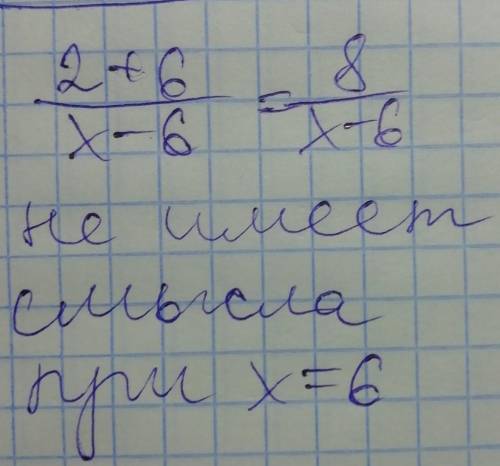 2+6 / x-6 = 8 / x-6
не имеет
смысла
при x=6